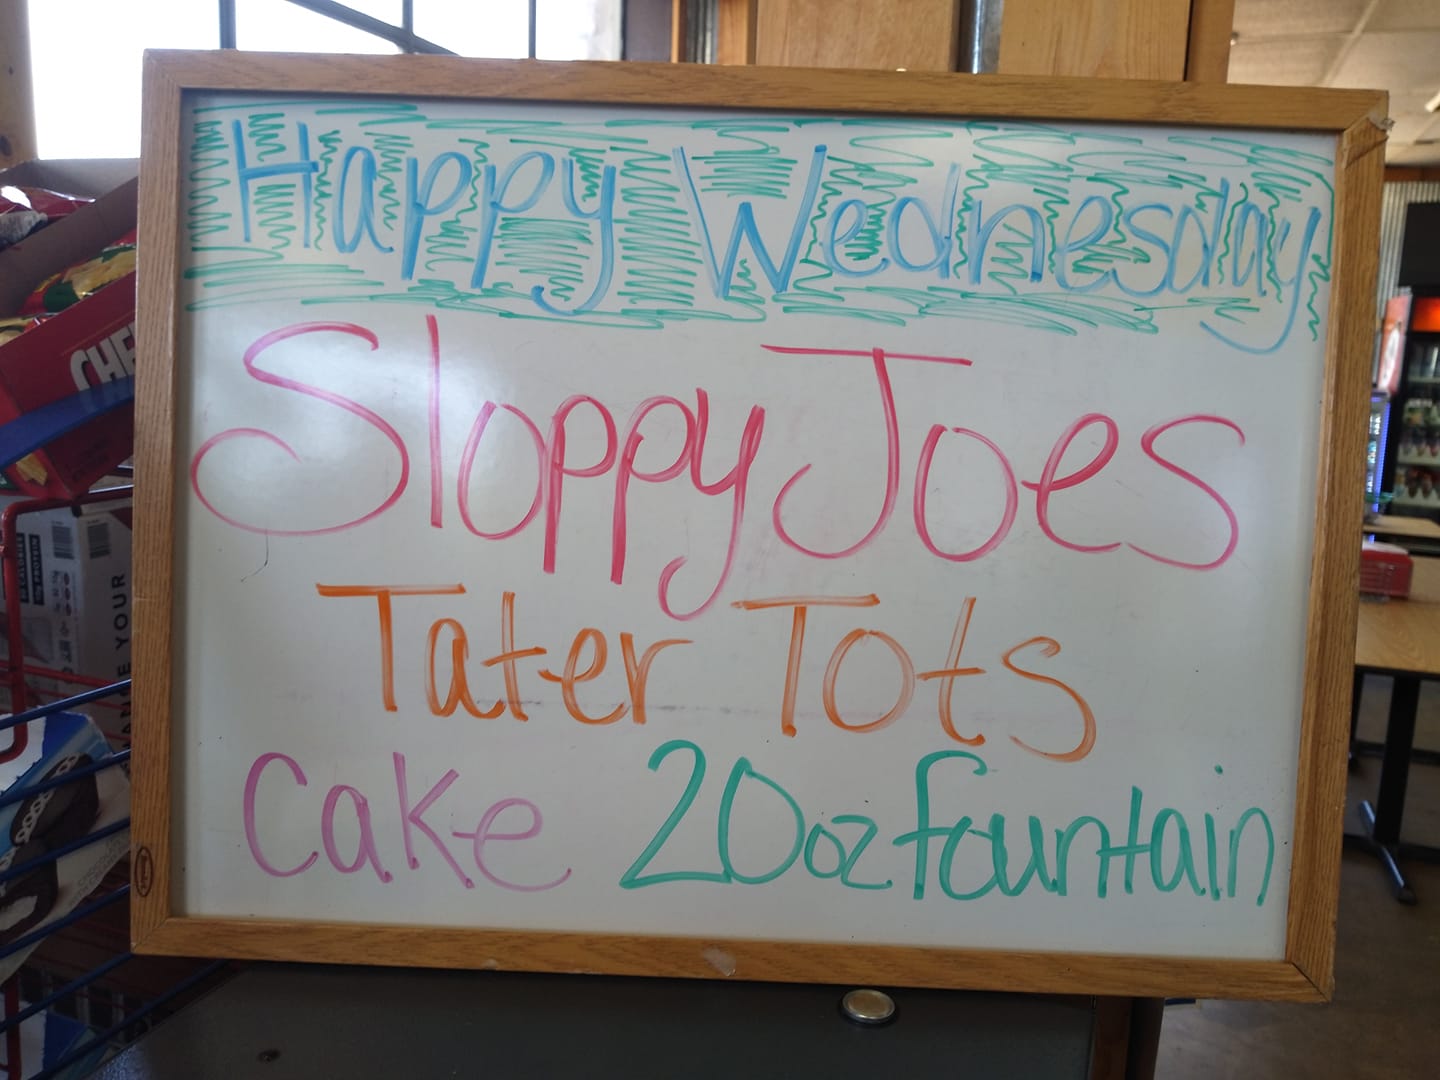 Happy Wednesday
Sloppy Joes
Tater Tots
Cake 20oz fountain
CHE
YOUR